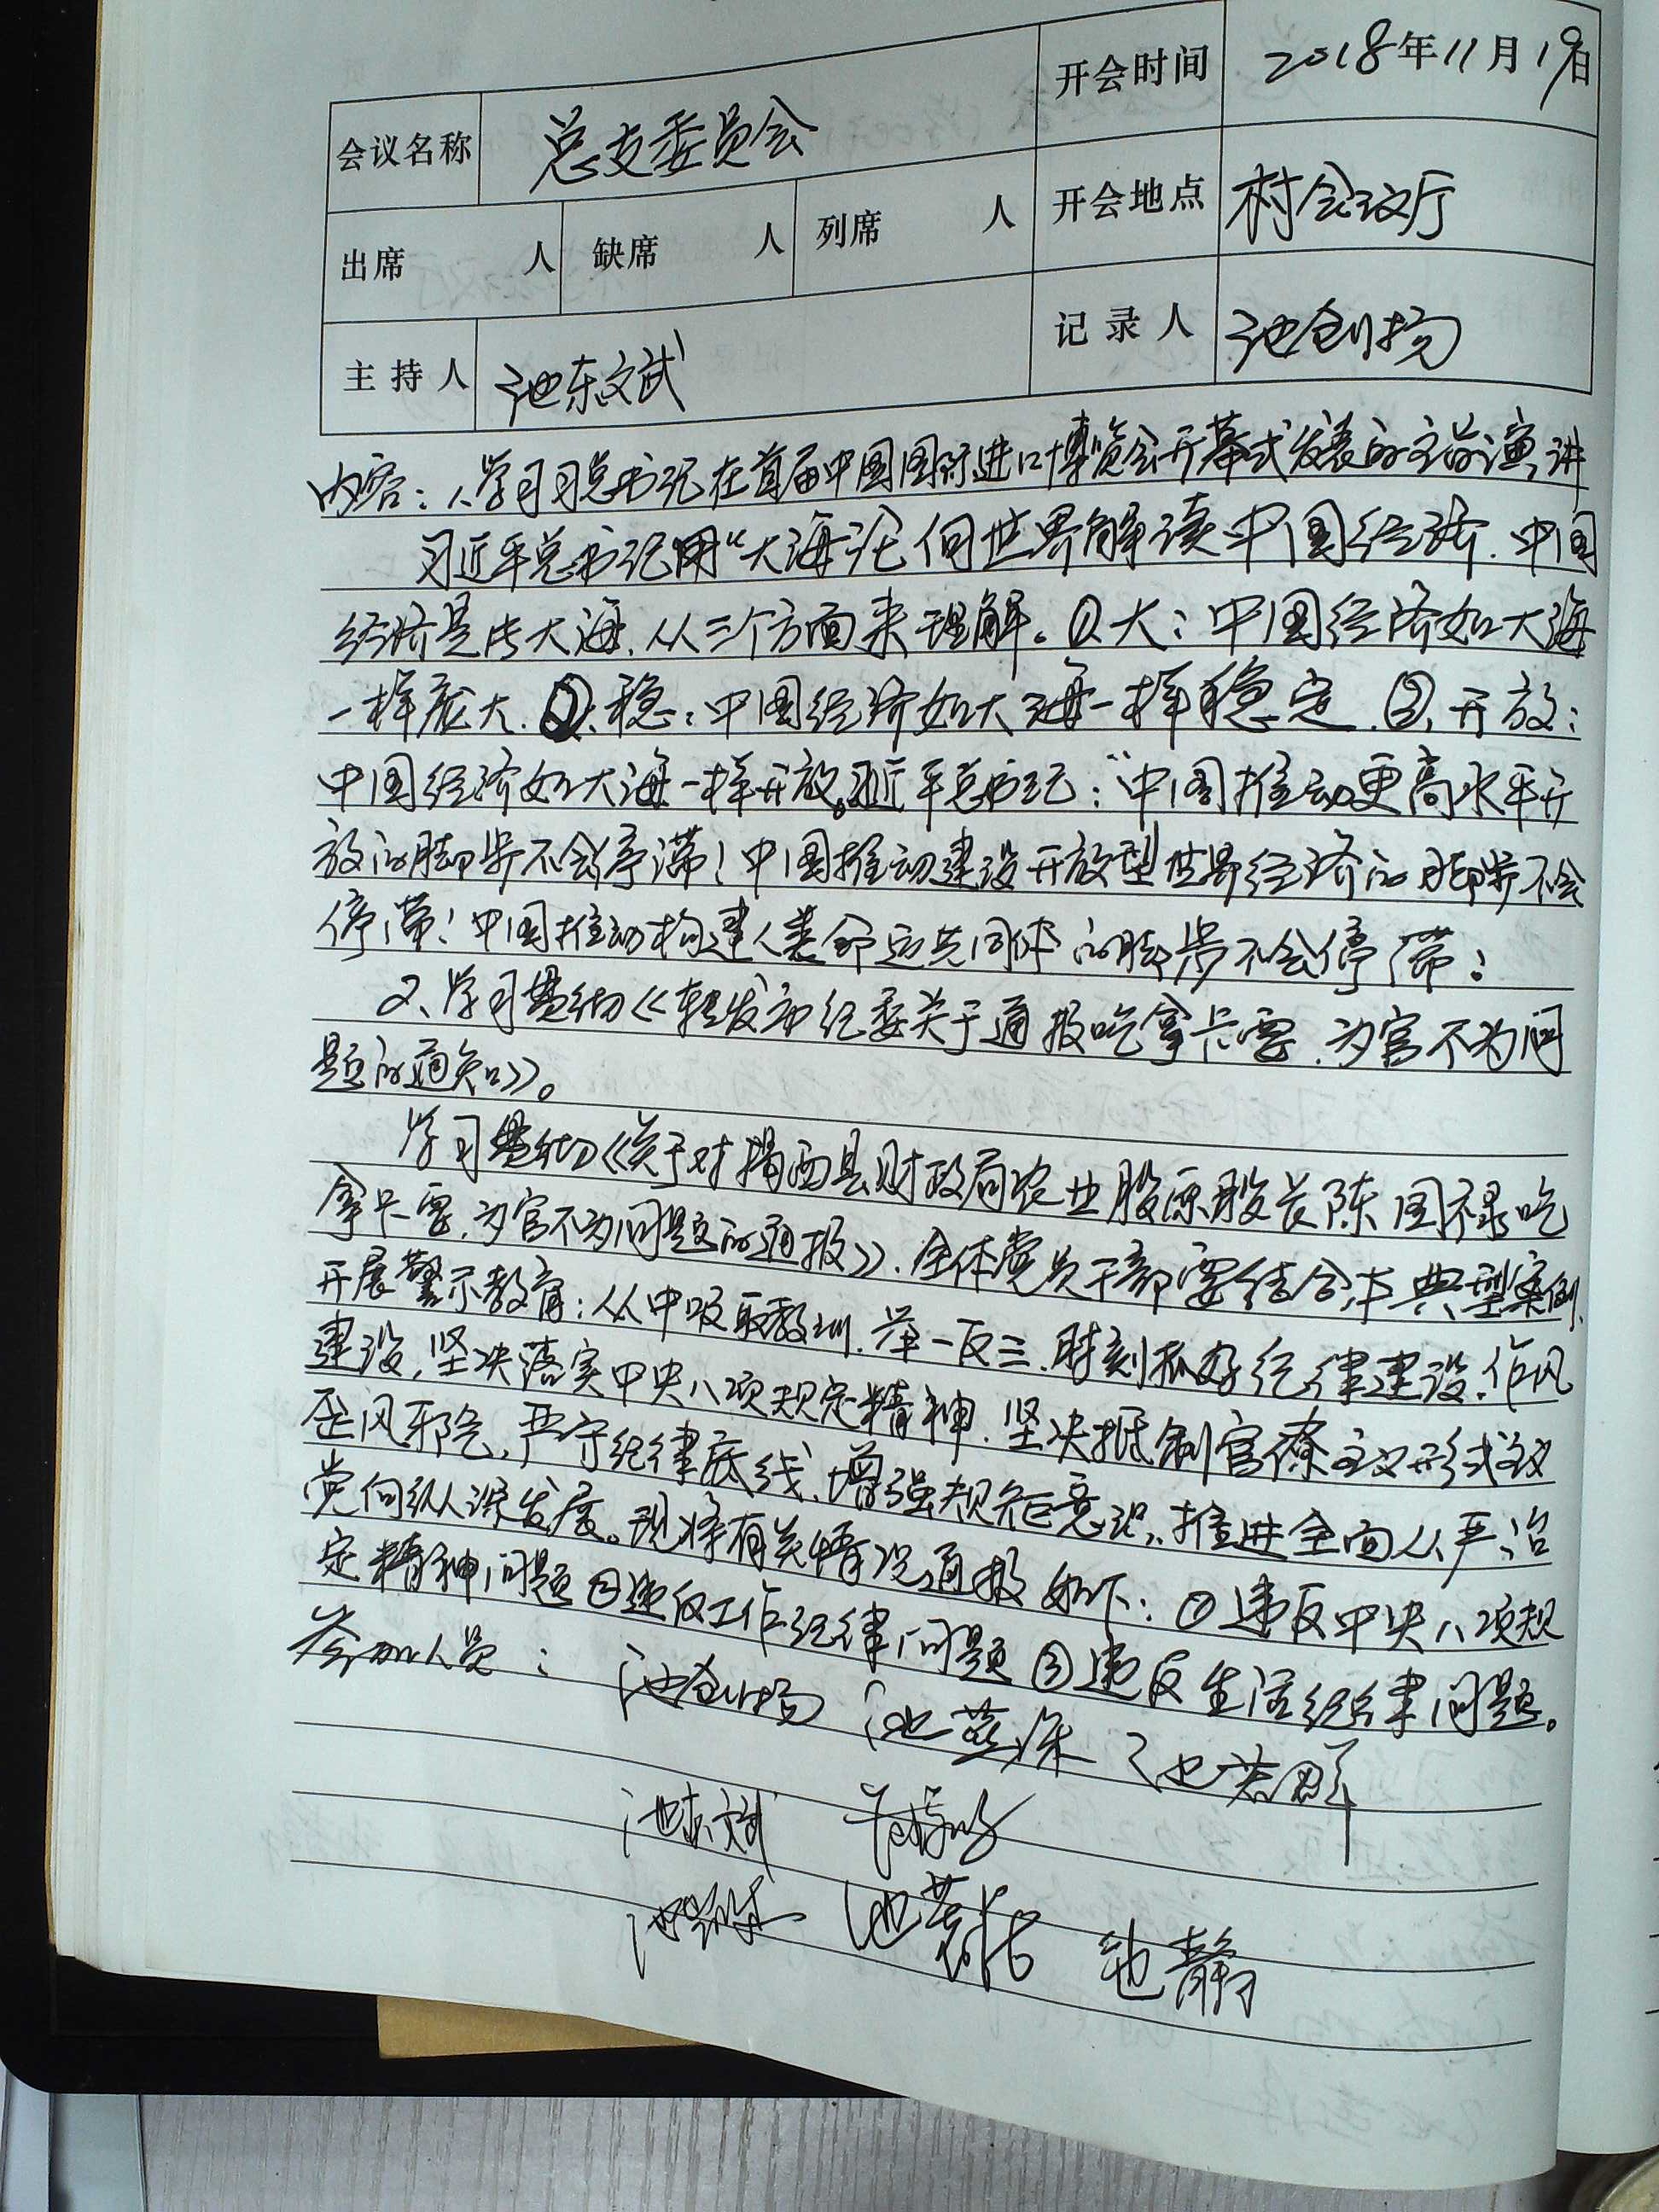 会议名称 总支委员会 开会时间 2018年11月19日
出席 人 缺席 人 列席 人 开会地点 村会议厅
主持人 池东斌 记录人 池创扬
内容：1、学习习总书记在首届中国国际进口博览会开幕式发表的主旨演讲
习近平总书记用“大海论”向世界解读中国经济.中国
经济是片大海.从三个方面来理解。①、大：中国经济如大海
一样庞大.②、稳：中国经济如大海一样稳定.③、开放：
中国经济如大海一样开放。习近平总书记：“中国推动更高水平开
放的脚步不会停滞！中国推动建设开放型世界经济的脚步不会
停滞！中国推动构建人类命运共同体的脚步不会停滞！
2、学习贯彻《转发市纪委关于通报吃拿卡要.为官不为问
题的通知》。
学习贯彻《关于对揭西县财政局农业股原股长陈国禄吃
拿卡要.为官不为问题的通报》.全体党员干部要结合本典型案例.
开展警示教育：从中吸取教训.举一反三.时刻抓好纪律建设.作风
建设，坚决落实中央八项规定精神.坚决抵制官僚主义形式主义
歪风邪气，严守纪律底线、增强规矩意识.推进全面从严治
党向纵深发展。现将有关情况通报如下：①违反中央八项规
定精神问题②违反工作纪律问题③违反生活纪律问题。
参加人员： 池创扬
池东斌
池静